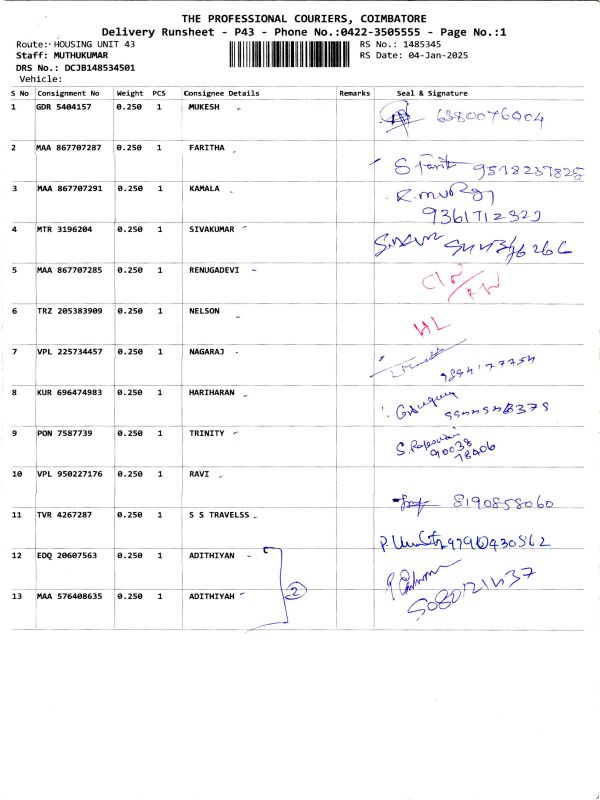 THE PROFESSIONAL COURIERS, COIMBATORE
Delivery Runsheet - P43 - Phone No.:0422-3505555 - Page No.:1
Route: HOUSING UNIT 43 RS No.: 1485345
Staff: MUTHUKUMAR RS Date: 04-Jan-2025
DRS No.: DCJB148534501
Vehicle:
S No Consignment No Weight PCS Consignee Details Remarks Seal & Signature
1 GDR 5404157 0.250 1 MUKESH 6380076004
2 MAA 867707287 0.250 1 FARITHA
3 MAA 867707291 0.250 1 KAMALA
4 MTR 3196204 0.250 1 SIVAKUMAR
5 MAA 867707285 0.250 1 RENUGADEVI
6 TRZ 205383909 0.250 1 NELSON HL
7 VPL 225734457 0.250 1 NAGARAJ 9894177754
8 KUR 696474983 0.250 1 HARIHARAN
9 PON 7587739 0.250 1 TRINITY
90038
78406
10 VPL 950227176 0.250 1 RAVI 8190858060
11 TVR 4267287 0.250 1 S S TRAVELSS
12 EDQ 20607563 0.250 1 ADITHIYAN
2
13 MAA 576408635 0.250 1 ADITHIYAH